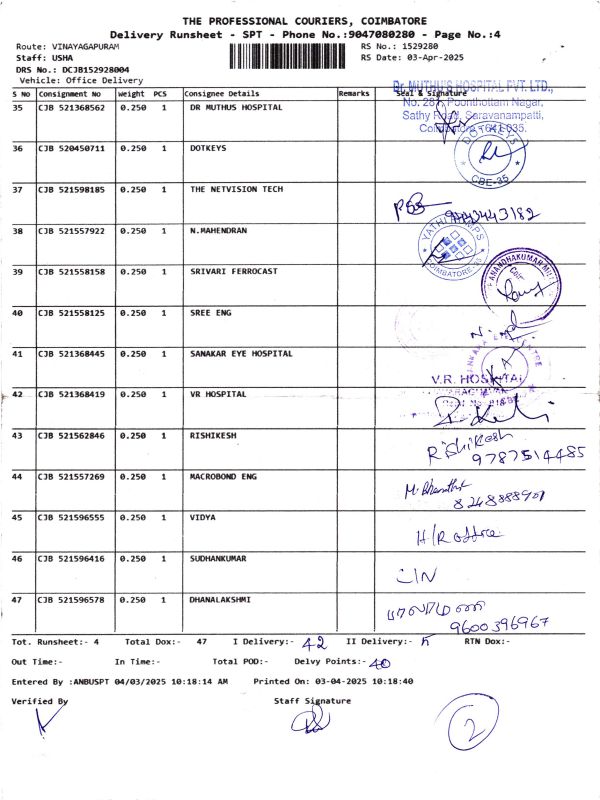 THE PROFESSIONAL COURIERS, COIMBATORE
Delivery Runsheet - SPT - Phone No.:9047080280 - Page No.:4
Route: VINAYAGAPURAM
RS No.: 1529280
Staff: USHA
RS Date: 03-Apr-2025
DRS No.: DCJB152928004
Vehicle: Office Delivery
S No Consignment No Weight PCS Consignee Details Remarks Seal & Signature
Dr. MUTHU'S HOSPITAL PVT. LTD.,
35 CJB 521368562 0.250 1 DR MUTHUS HOSPITAL
Poonthottam Nagar,
Sathy Road, Saravanampatti,
Coimbatore - 641 035.
36 CJB 520450711 0.250 1 DOTKEYS
DOT KEYS
CBE-35
37 CJB 521598185 0.250 1 THE NETVISION TECH
38 CJB 521557922 0.250 1 N.MAHENDRAN
COIMBATORE-35
39 CJB 521558158 0.250 1 SRIVARI FERROCAST
40 CJB 521558125 0.250 1 SREE ENG
41 CJB 521368445 0.250 1 SANAKAR EYE HOSPITAL
V.R. HOSPITAL
42 CJB 521368419 0.250 1 VR HOSPITAL
43 CJB 521562846 0.250 1 RISHIKESH
Rishikesh
9787514485
44 CJB 521557269 0.250 1 MACROBOND ENG
45 CJB 521596555 0.250 1 VIDYA
H/R office
46 CJB 521596416 0.250 1 SUDHANKUMAR
47 CJB 521596578 0.250 1 DHANALAKSHMI
9600396967
Tot. Runsheet:- 4 Total Dox:- 47 I Delivery:- 42 II Delivery:- 5 RTN Dox:-
Out Time:- In Time:- Total POD:- Delvy Points:- 40
Entered By :ANBUSPT 04/03/2025 10:18:14 AM Printed On: 03-04-2025 10:18:40
Verified By Staff Signature
2